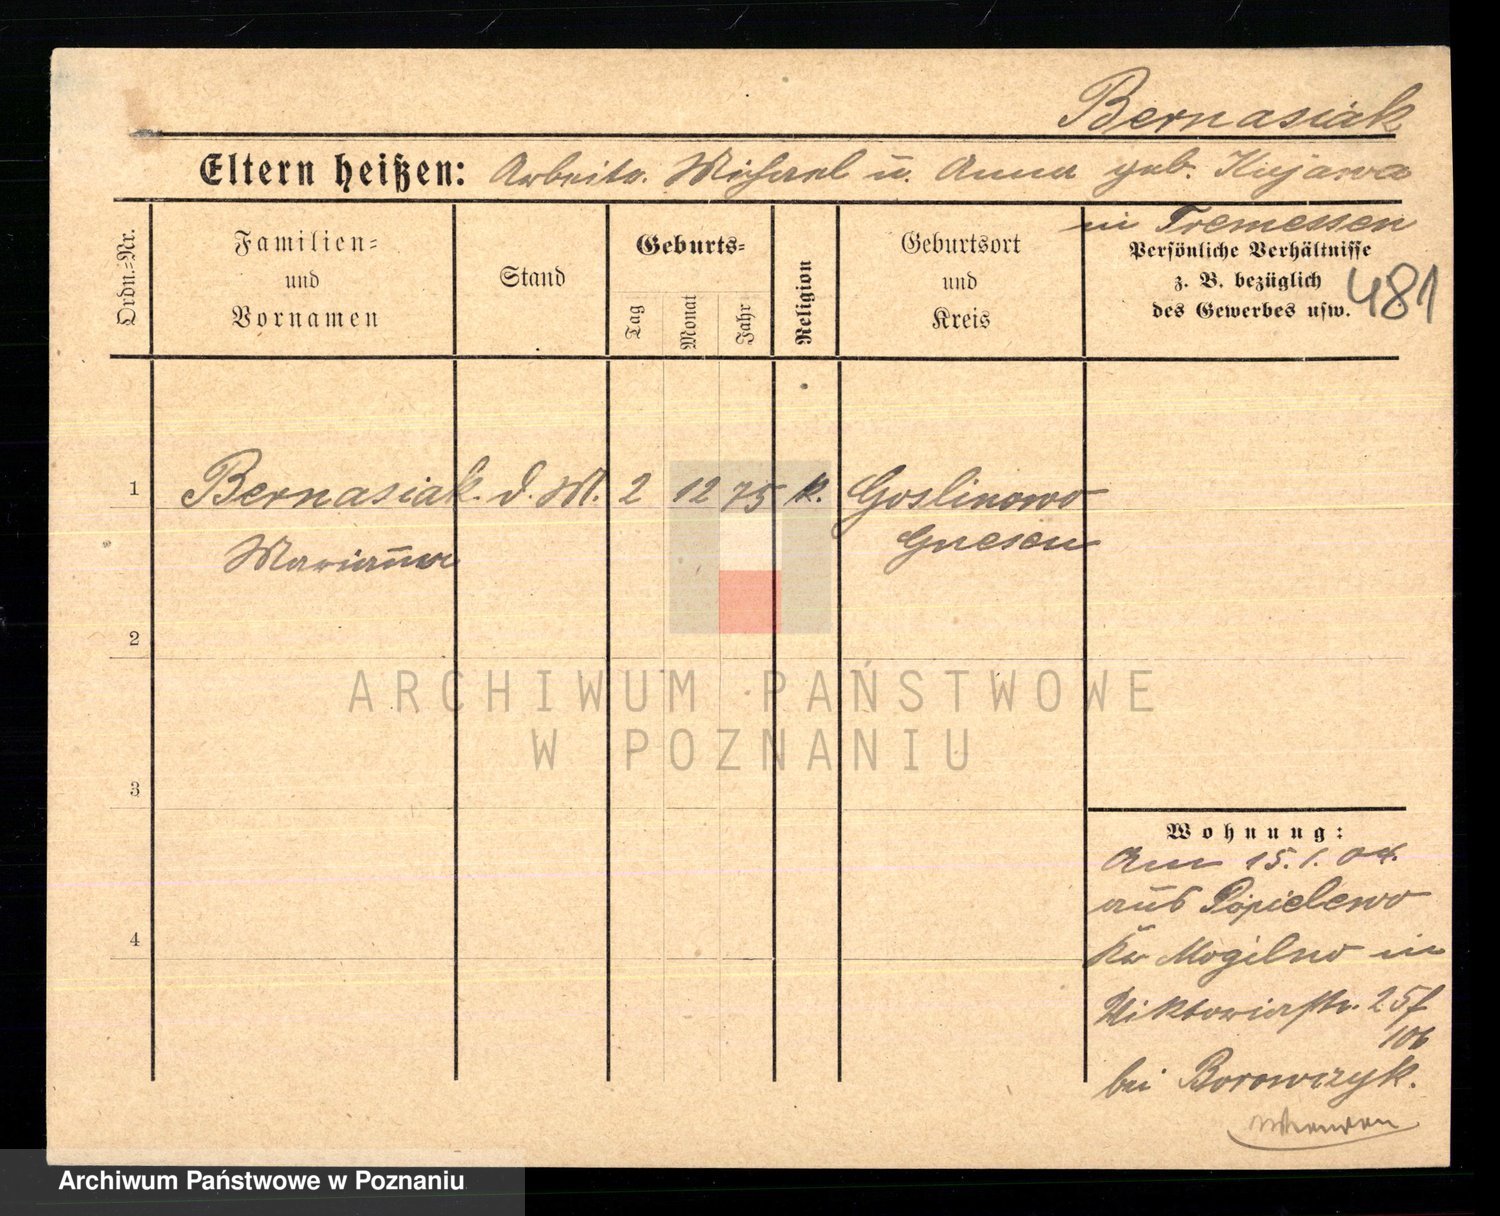 Bernasiak
Eltern heißen: Arbeitr. Michael u. Anna geb. Kujawa
in Tremessen
Ordn.-Nr.
Familien-
und
Vornamen
Stand
Geburts-
Tag
Monat
Jahr
Religion
Geburtsort
und
Kreis
Persönliche Verhältnisse
z. B. bezüglich
des Gewerbes usw.
481
1 Bernasiak d. M. 2 12 75 k. Goslinowo
Marianna Gnesen
2
3
4
ARCHIWUM PAŃSTWOWE
W POZNANIU
Wohnung:
Am 15.1.04.
aus Popielewo
Kr Mogilno in
Viktoriastr. 25f
106
bei Borowczyk.
Archiwum Państwowe w Poznaniu